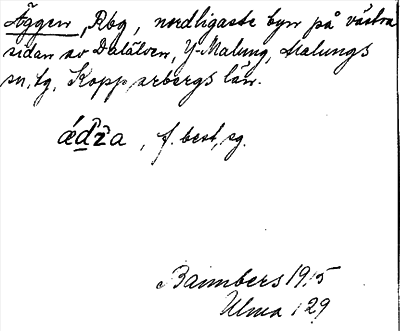 Äggen, Rbg, nordligaste byn på västra
sidan av Dalälven, Y-Malung, Malungs
sn, tg, Kopparbergs län.
f. best, sg.
1915
Ulma 129